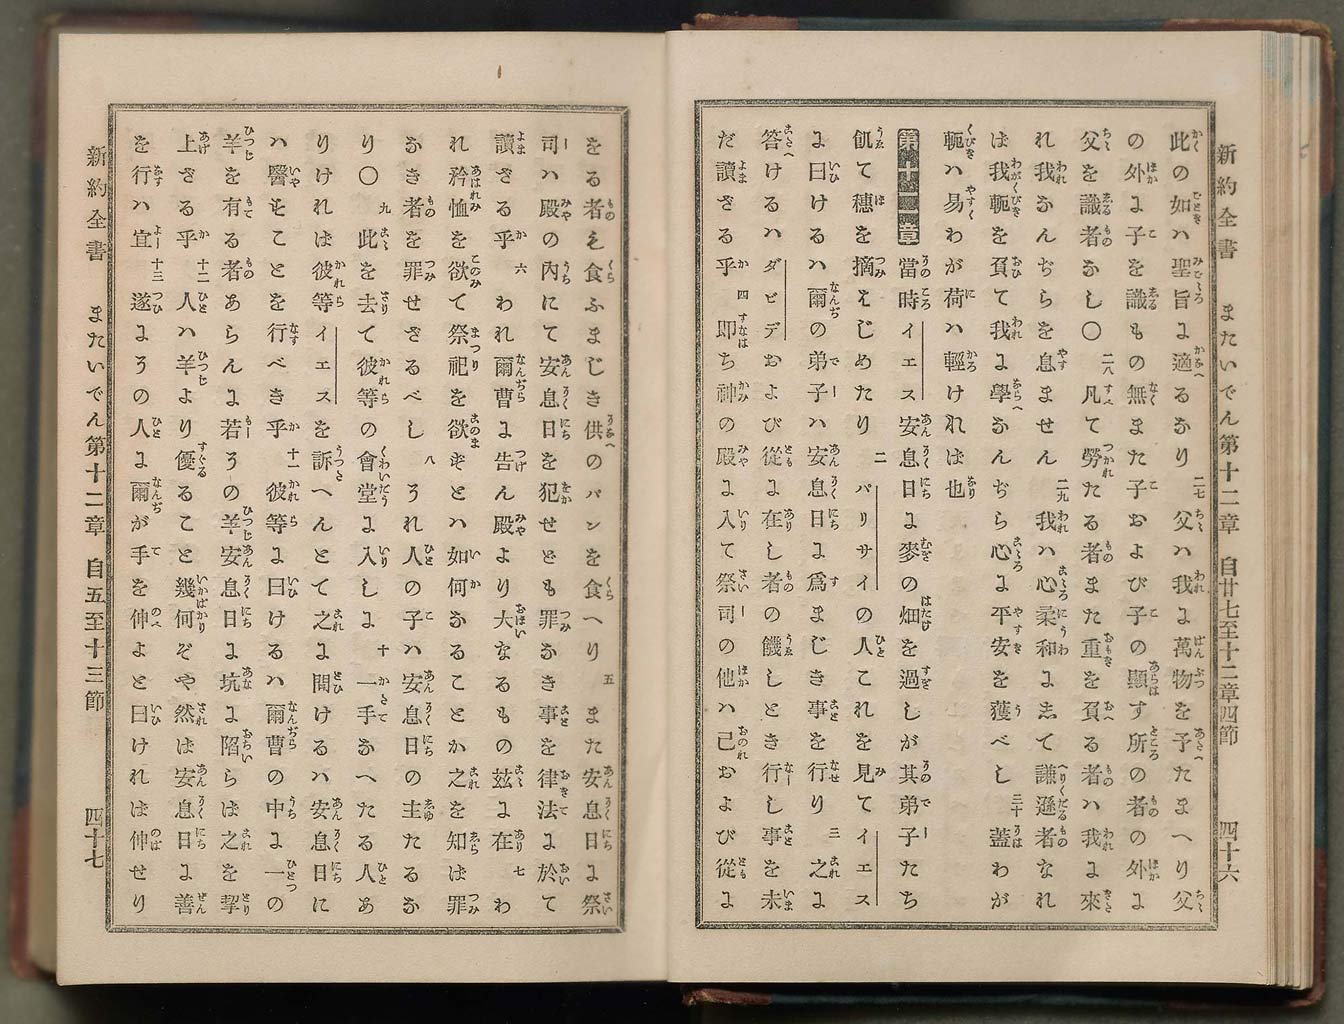 新約全書　またいでん第十二章　自廿七至十二章四節　四十六
此の如ハ聖旨よ適るなり 二七 父ハ我よ萬物を予たまへり父
の外よ子を識もの無また子および子の顯す所の者の外よ
父を識者なし〇 二八 凡て勞たる者また重を負る者ハ我よ來
れ我なんぢらを息ません 二九 我ハ心柔和よして謙遜者なれ
ば我軛を負て我よ學なんぢら心よ平安を獲べし 三十 蓋わが
軛ハ易わが荷ハ輕ければ也
第十二章 當時イエス安息日よ麥の畑を過しが其弟子たち
飢て穗を摘えじめたり 二 パリサイの人これを見てイエス
よ曰けるハ爾の弟子ハ安息日よ爲まじき事を行り 三 之よ
答けるハダビデおよび從よ在し者の饑しとき行し事を未
だ讀ざる乎 四 即ち神の殿よ入て祭司の他ハ己および從よ
新約全書　またいでん第十二章　自五至十三節　四十七
をる者も食ふまじき供のパンを食へり 五 また安息日よ祭
司ハ殿の內にて安息日を犯せども罪なき事を律法よ於て
讀ざる乎 六 われ爾曹よ告ん殿より大なるもの玆よ在 七 わ
れ矜恤を欲て祭祀を欲ずとハ如何なることか之を知ば罪
なき者を罪せざるべし 八 それ人の子ハ安息日の主たるな
り〇 九 此を去て彼等の會堂よ入しよ 十 一手なへたる人あ
りければ彼等イエスを訴へんとて之よ問けるハ安息日に
ハ醫すことを行べき乎 十一 彼等よ曰けるハ爾曹の中よ一の
羊を有る者あらんよ若その羊安息日よ坑よ陷らば之を挈
上ざる乎 十二 人ハ羊より優ること幾何ぞや然ば安息日よ善
を行ハ宜 十三 遂よその人よ爾が手を伸よと曰ければ伸せり